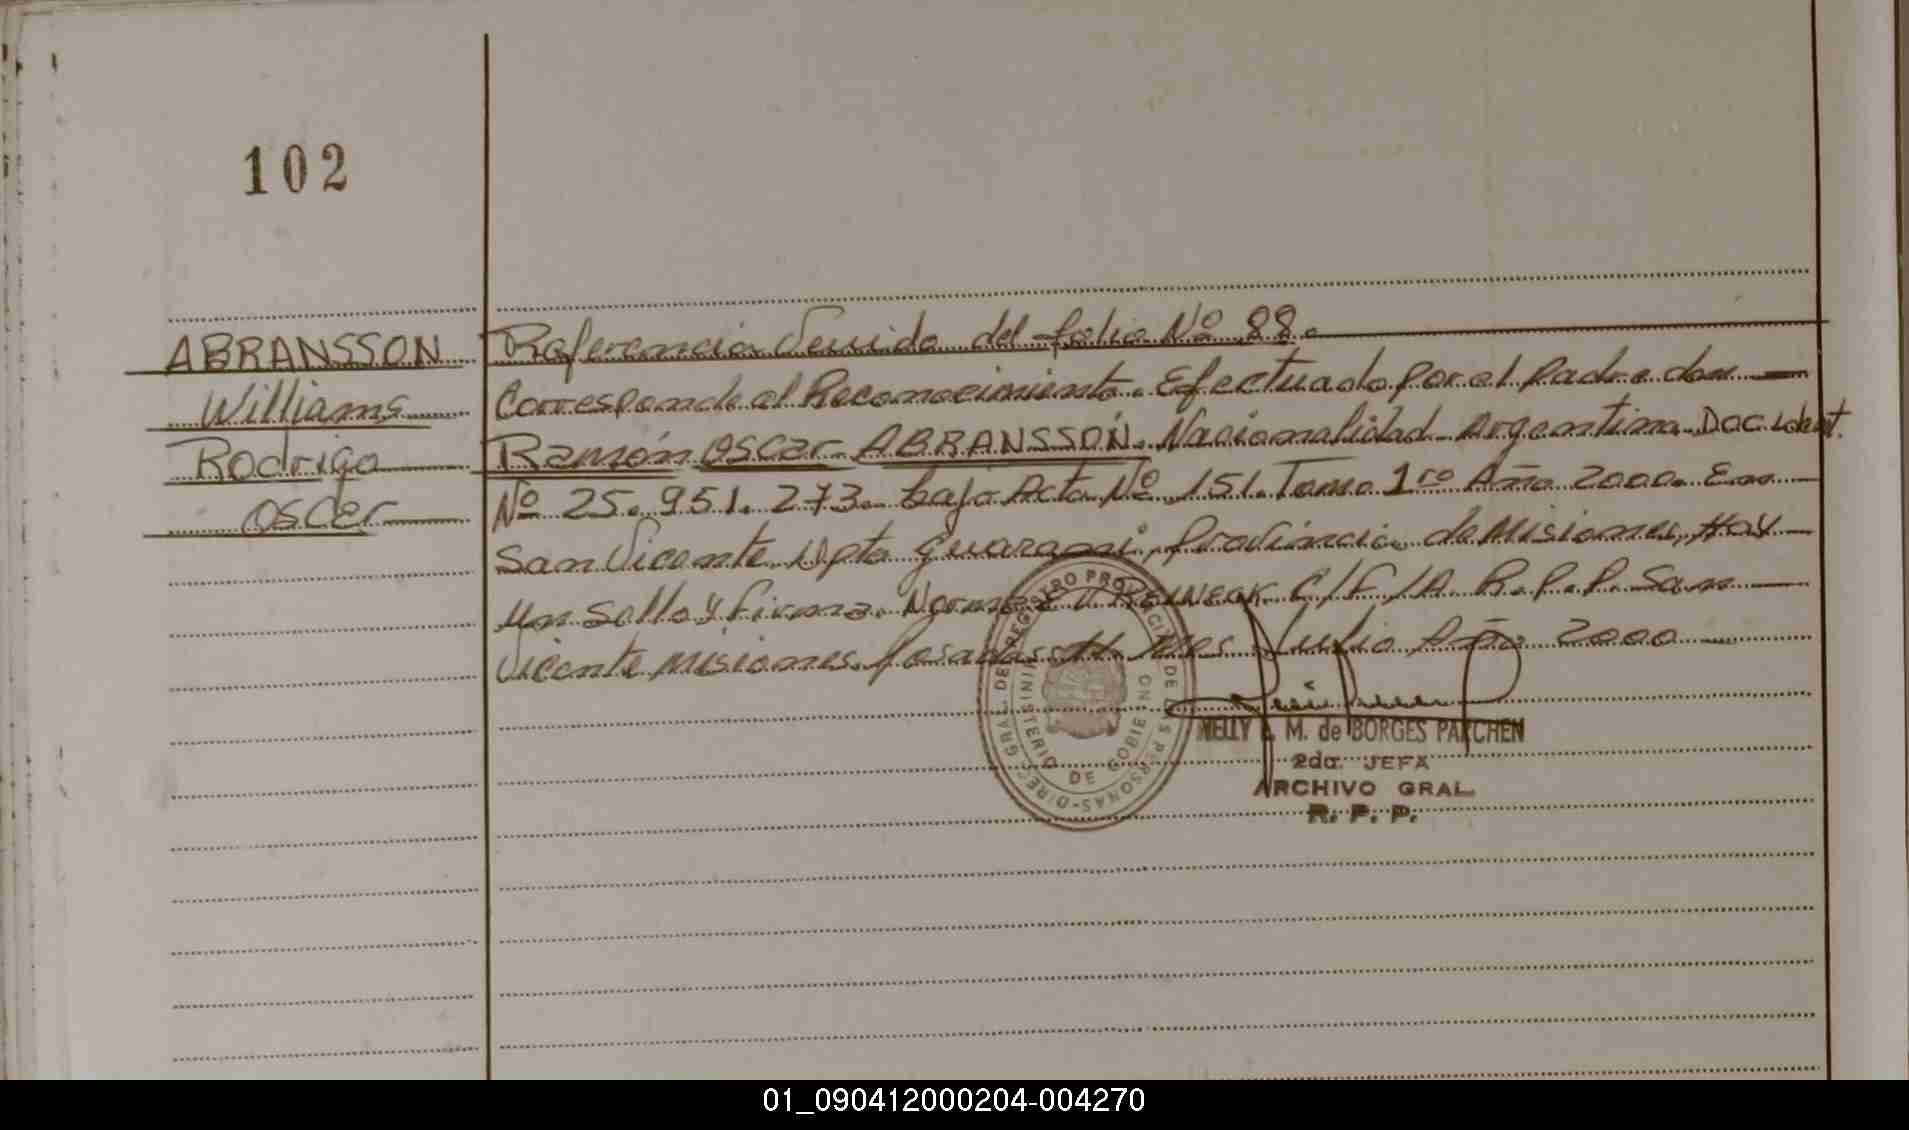 102
ABRANSSON
Williams
Rodrigo
OSCAR
Referencia Venida del folio Nº 88.
Corresponde al Reconocimiento. Efectuado por el padre don
Ramón OSCAR ABRANSSON. Nacionalidad Argentina. DOC. Ident.
Nº 25.951.273. bajo Acta Nº 151. Tomo 1ro Año 2000. En
San Vicente Dpto Guarani, Provincia de Misiones, Hay
Un Sello y firma. C/F/A. R.P.P. San
Vicente Misiones. Posadas Mes Julio Año 2000
DIREC. GRAL. DE REGISTRO PROVINCIAL DE LAS PERSONAS
MINISTERIO DE GOBIERNO
NELLY M. de BORGES PARCHEN
2da. JEFA
ARCHIVO GRAL.
R. P. P.
01_090412000204-004270